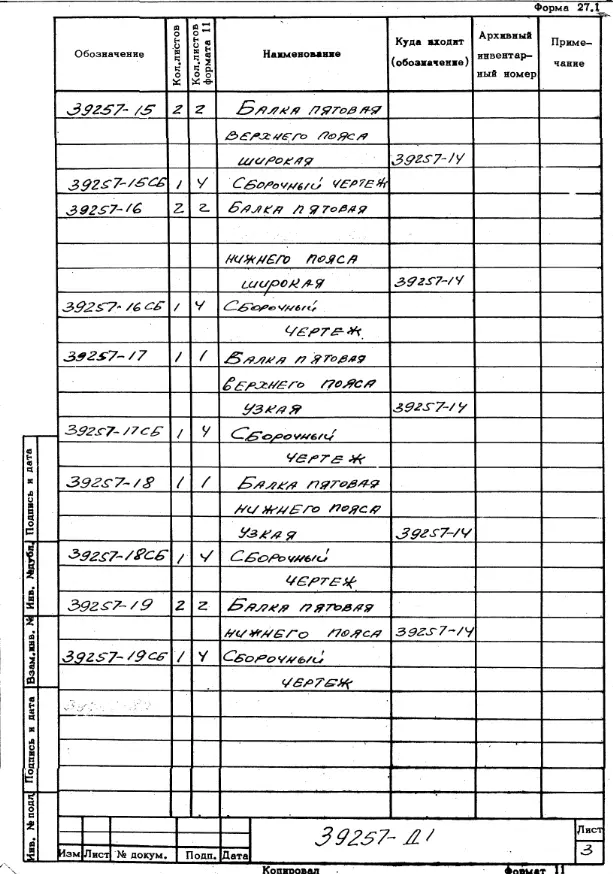 Форма 27.1
Обозначение
Кол.листов
Кол.листов формата 11
Наименование
Куда входит (обозначение)
Архивный инвентар- ный номер
Приме- чание
39257-15 2 2 Балка пятовая
верхнего пояса
широкая 39257-14
39257-15СБ 1 4 Сборочный чертеж
39257-16 2 2 Балка пятовая
нижнего пояса
широкая 39257-14
39257-16СБ 1 4 Сборочный
чертеж
39257-17 1 1 Балка пятовая
верхнего пояса
узкая 39257-14
39257-17СБ 1 4 Сборочный
чертеж
39257-18 1 1 Балка пятовая
нижнего пояса
узкая 39257-14
39257-18СБ 1 4 Сборочный
чертеж
39257-19 2 2 Балка пятовая
нижнего пояса 39257-14
39257-19СБ 1 4 Сборочный
чертеж
Подпись и дата
Инв. №дубл.
Взам.инв. №
Подпись и дата
Инв. №подл
39257-Д1
Лист
3
Изм Лист № докум. Подп. Дата
Копировал Формат 11